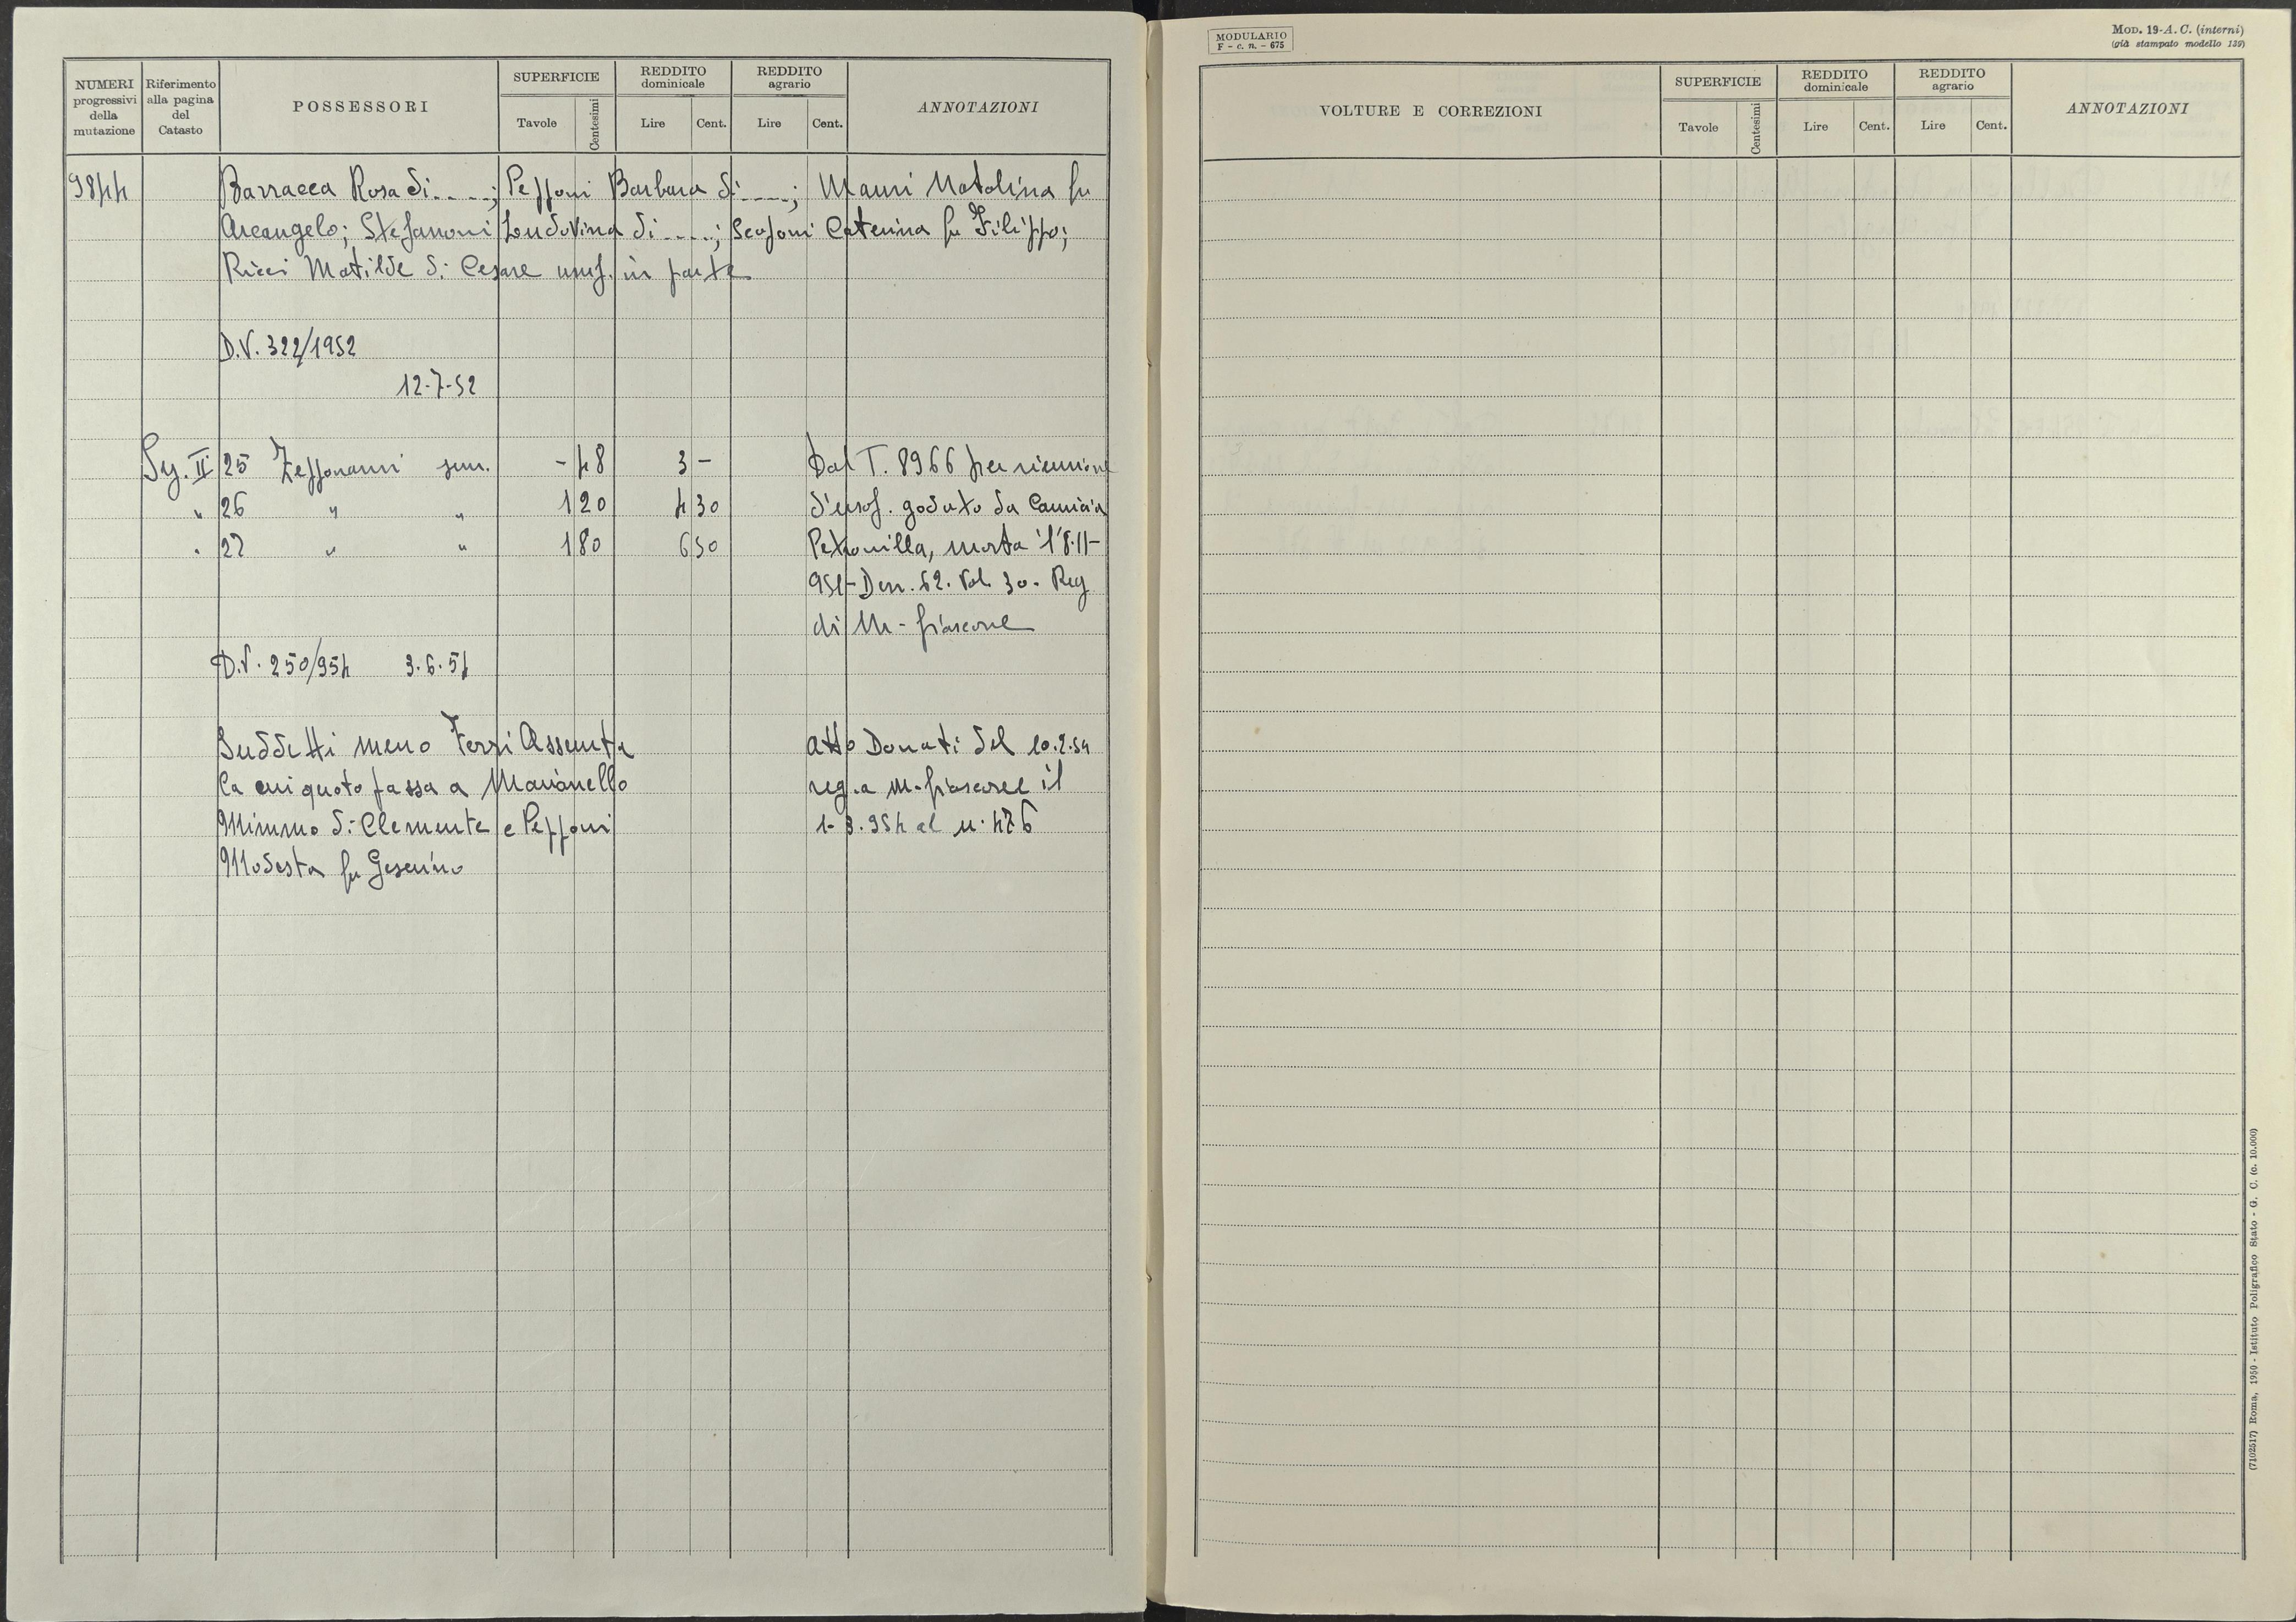 NUMERI progressivi della mutazione
Riferimento alla pagina del Catasto
POSSESSORI
SUPERFICIE
Tavole
Centesimi
REDDITO dominicale
Lire
Cent.
REDDITO agrario
Lire
Cent.
ANNOTAZIONI
9844 Barracca Rosa di ....; Pepponi Barbara di ....; Mauri Natalina fu
Arcangelo; Stefanoni Lundovina di ....; Scoponi Caterina fu Filippo;
Ricci Matilde di Cesare usuf. in parte
D.V. 322/1952
12-7-52
Sez. II 25 Zepponami sem. - 48 3 - Dal T. 8966 per riunione
" 26 " " 1 20 4 30 d'usuf. goduto da Camicia
" 27 " " 1 80 6 50 Petronilla, morta l'8-11-
951- Den. 62. Vol. 30. Reg
di M-fiascone
D.V. 250/954 3.6.54
Suddetti meno Ferri Assunta Atto Donati del 10.2.54
la cui quota passa a Marianello reg. a M-fiascone il
Mimmo di Clemente e Pepponi 1-3.954 al n. 476
Modesta fu Geserino
MODULARIO
F - c. n. - 675
MOD. 19-A. C. (interni)
(già stampato modello 139)
VOLTURE E CORREZIONI
SUPERFICIE
Tavole
Centesimi
REDDITO dominicale
Lire
Cent.
REDDITO agrario
Lire
Cent.
ANNOTAZIONI
(7102517) Roma, 1950 - Istituto Poligrafico Stato - G. C. (c. 10.000)